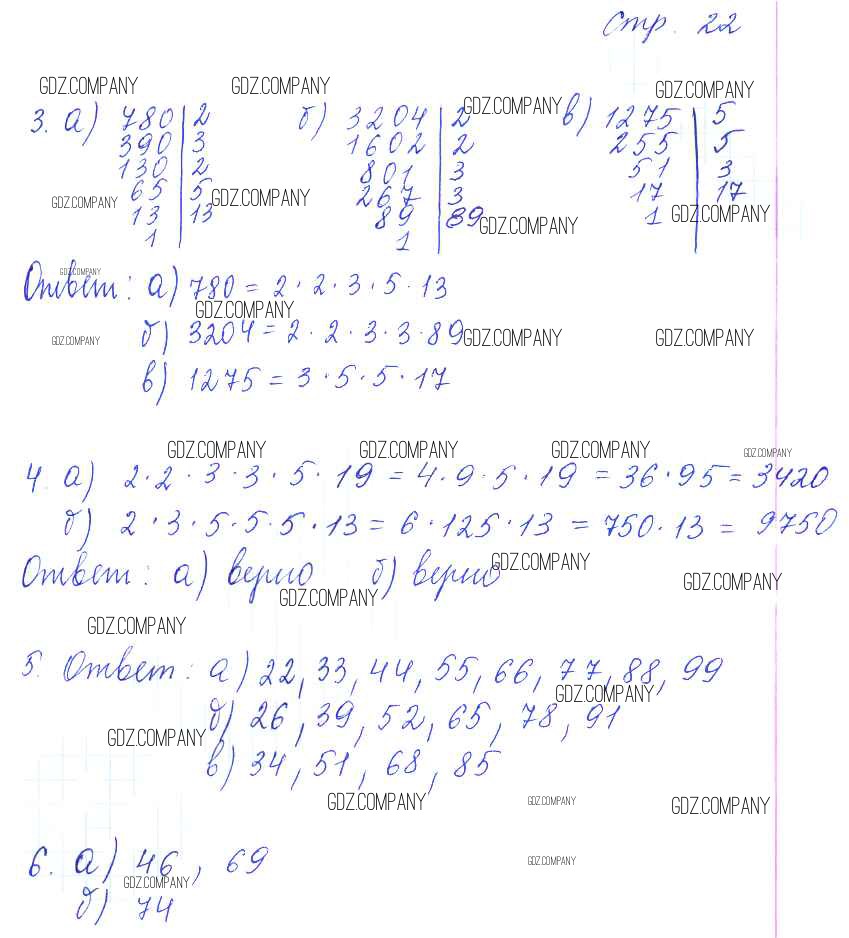 стр. 22
GDZ.COMPANY GDZ.COMPANY GDZ.COMPANY GDZ.COMPANY
3. а) 780 | 2 б) 3204 | 2 в) 1275 | 5
390 | 3 1602 | 2 255 | 5
130 | 2 801 | 3 51 | 3
65 | 5 267 | 3 17 | 17
GDZ.COMPANY GDZ.COMPANY
13 | 13 89 | 89 1
GDZ.COMPANY GDZ.COMPANY
1 1
GDZ.COMPANY
Ответ: а) 780 = 2 · 2 · 3 · 5 · 13
GDZ.COMPANY
б) 3204 = 2 · 2 · 3 · 3 · 89
GDZ.COMPANY GDZ.COMPANY GDZ.COMPANY
в) 1275 = 3 · 5 · 5 · 17
GDZ.COMPANY GDZ.COMPANY GDZ.COMPANY GDZ.COMPANY
4. а) 2 · 2 · 3 · 3 · 5 · 19 = 4 · 9 · 5 · 19 = 36 · 95 = 3420
б) 2 · 3 · 5 · 5 · 5 · 13 = 6 · 125 · 13 = 750 · 13 = 9750
GDZ.COMPANY
Ответ: а) верно б) верно
GDZ.COMPANY GDZ.COMPANY
GDZ.COMPANY
5. Ответ: а) 22, 33, 44, 55, 66, 77, 88, 99
GDZ.COMPANY
б) 26, 39, 52, 65, 78, 91
GDZ.COMPANY
в) 34, 51, 68, 85
GDZ.COMPANY GDZ.COMPANY GDZ.COMPANY
6. а) 46, 69
GDZ.COMPANY
GDZ.COMPANY
б) 74